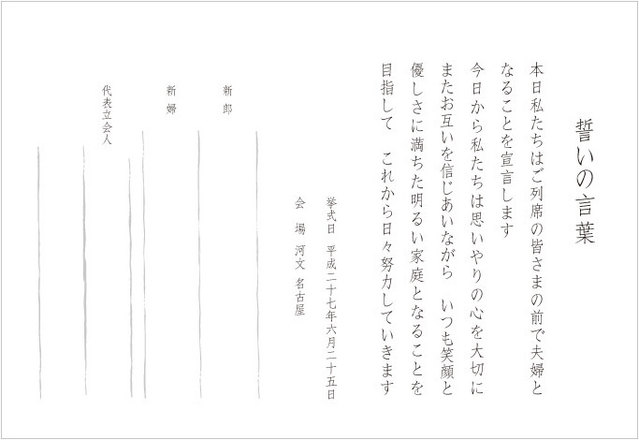 誓いの言葉
本日私たちはご列席の皆さまの前で夫婦と
なることを宣言します
今日から私たちは思いやりの心を大切に
またお互いを信じあいながら　いつも笑顔と
優しさに満ちた明るい家庭となることを
目指して　これから日々努力していきます
挙式日　平成二十七年六月二十五日
会　場　河文　名古屋
新郎
新婦
代表立会人